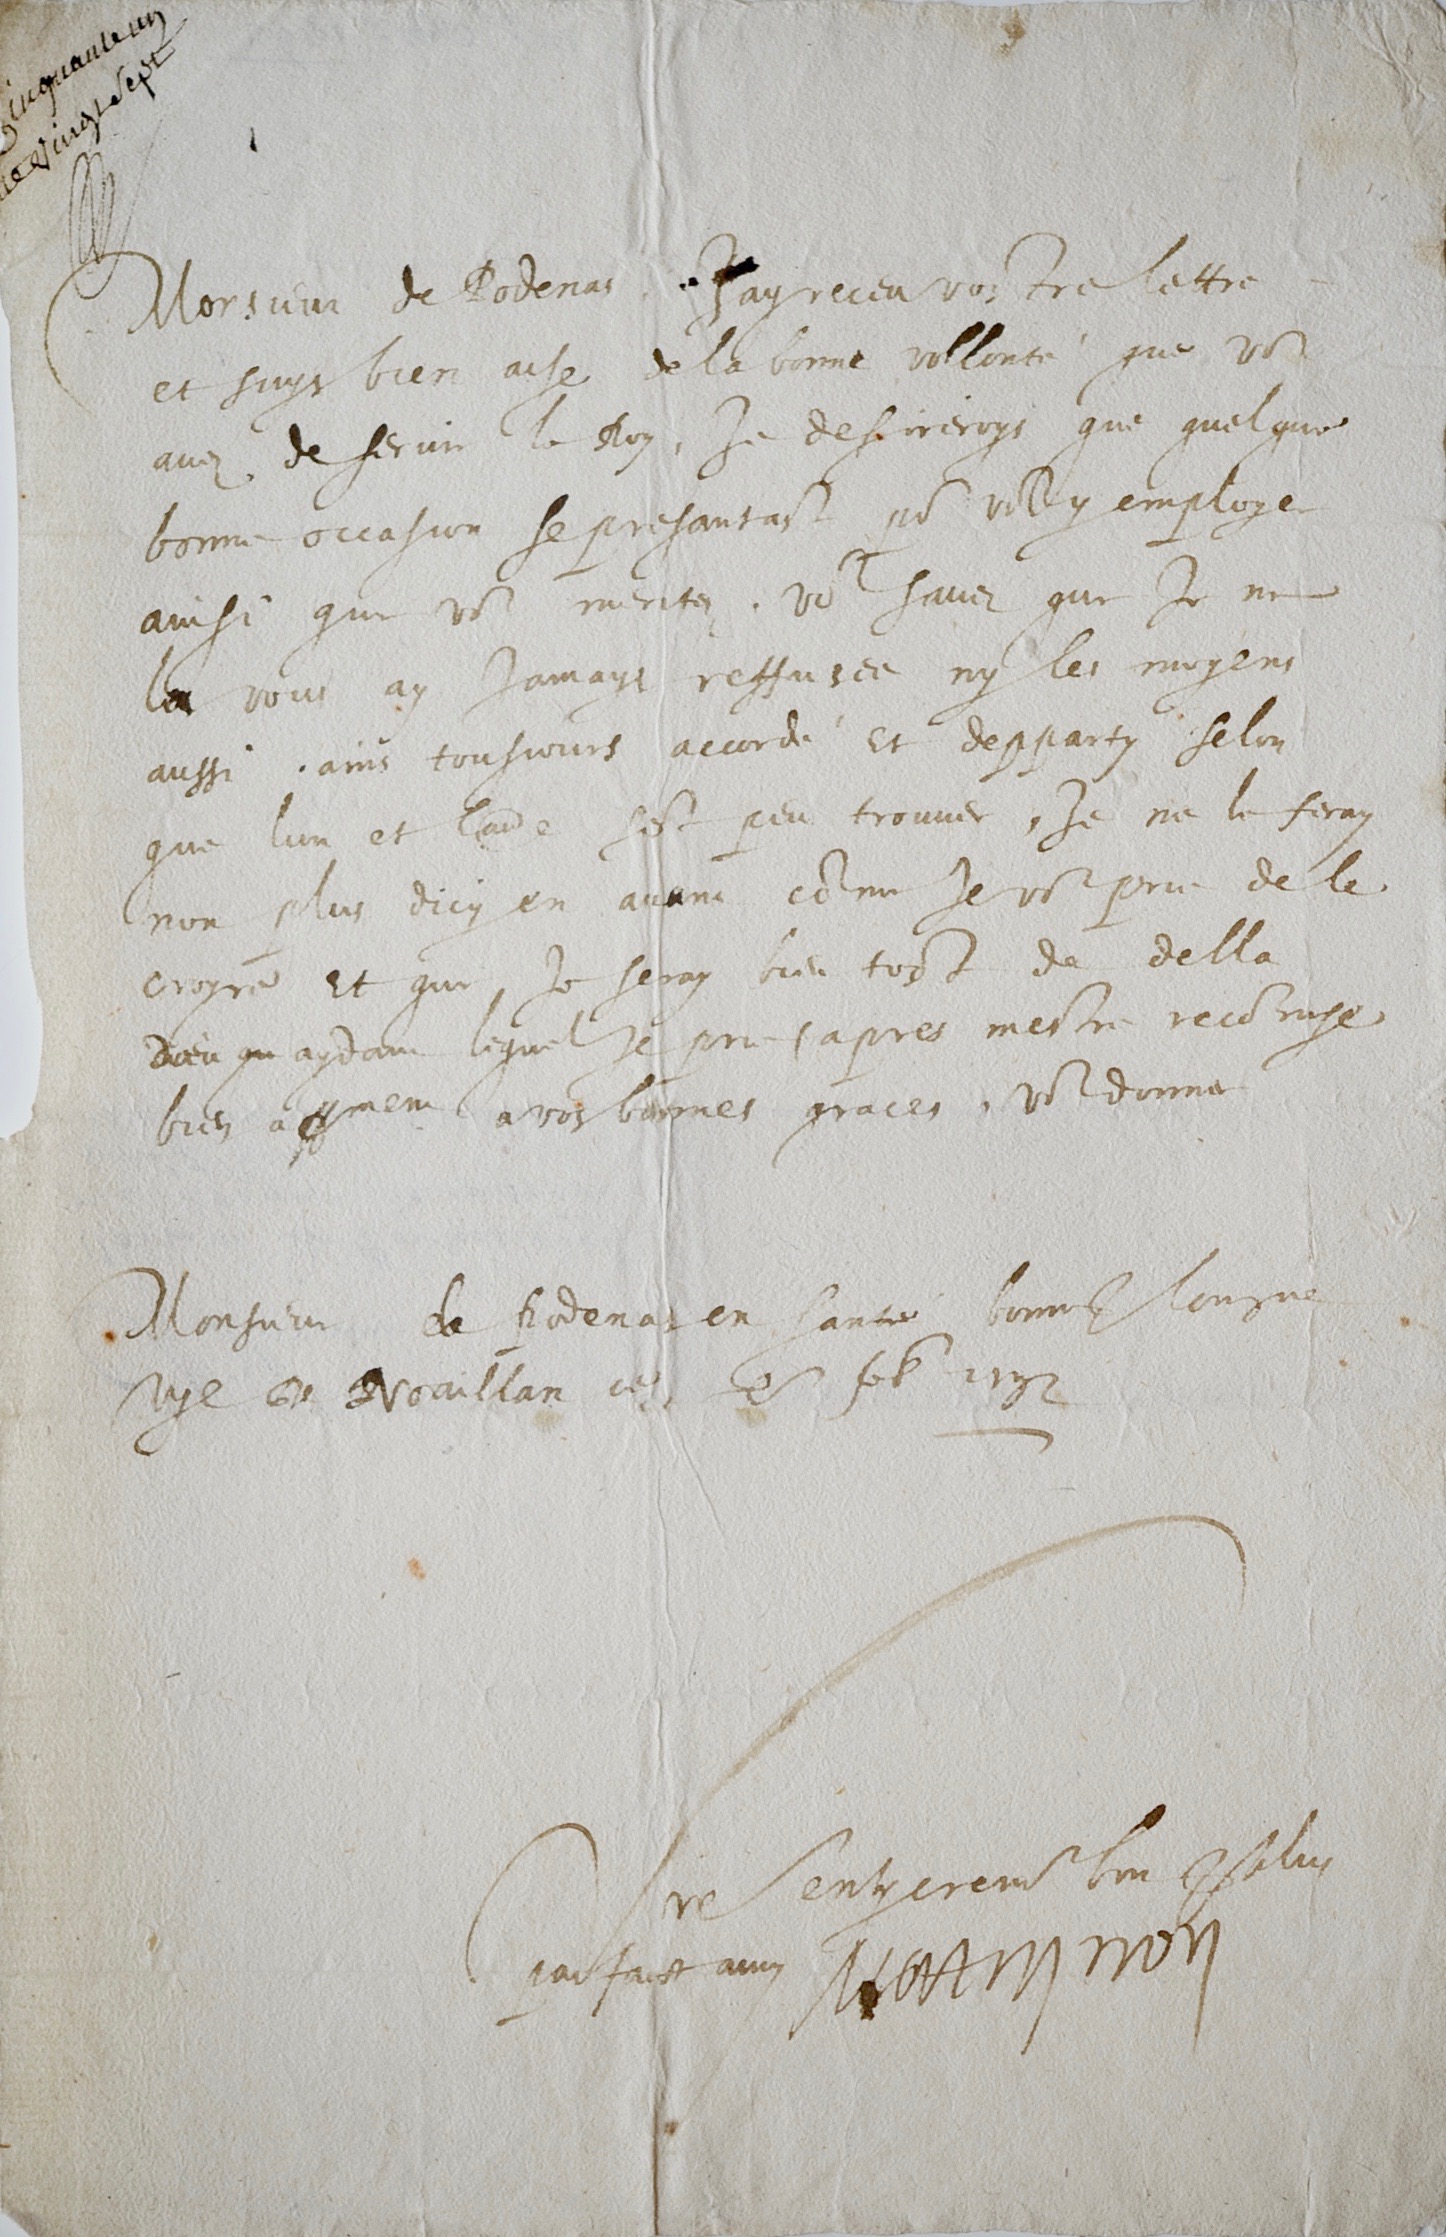 cinquante un
vingt sept
Monsieur de Podenas. Jay receu vostre lettre
et suys bien aise de la bonne vollonté que vo9
avez de servir le Roy, Je desireroys que quelque
bonne occasion se presantast po vo9 y employer
ainsi que vo9 meritez. vo9 savez que Je ne
la vous ay Jamays reffusée ny les moyens
aussi. ains tousiours accordé et depparty selon
que lun et laue sest peu trouver, Je ne le feray
non plus dicy en avant come Je vo9 prie de le
croyre et que Je seray bien tost de della
Dieu aydant lequel Je prie apres mestre recomise
bien a vos bonnes graces, vo9 donner
Monsieur de Podenas en santé bonne & longue
vye de Noaillan ce feb
entyerem bon & plus
parfaict amy